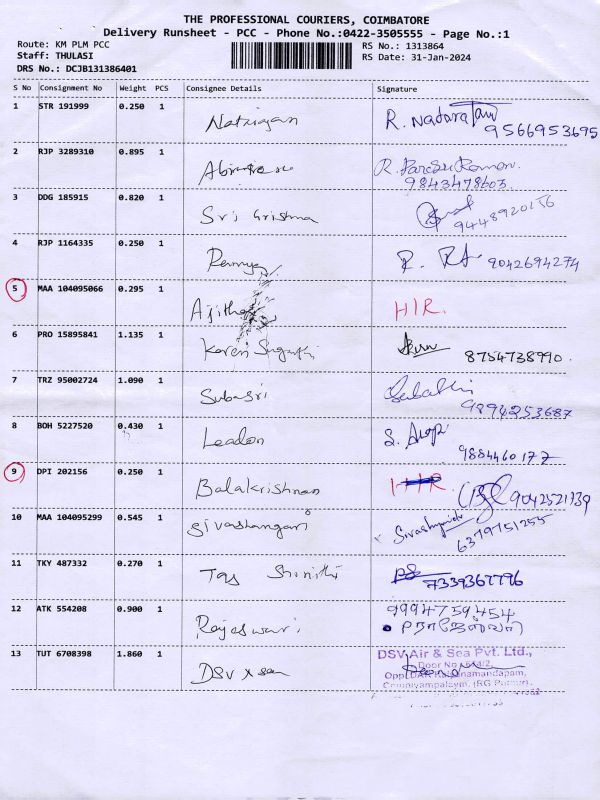 THE PROFESSIONAL COURIERS, COIMBATORE
Delivery Runsheet - PCC - Phone No.:0422-3505555 - Page No.:1
Route: KM PLM PCC
RS No.: 1313864
Staff: THULASI
RS Date: 31-Jan-2024
DRS No.: DCJB131386401
S No Consignment No Weight PCS Consignee Details Signature
1 STR 191999 0.250 1 Natrajan R. Nadarajan
9566953695
2 RJP 3289310 0.895 1
9843478603
3 DDG 185915 0.820 1 Sri Krishna
9448920156
4 RJP 1164335 0.250 1 Ramya R. 9042694274
5 MAA 104095066 0.295 1 Ajitha HIR.
6 PRO 15895841 1.135 1 8754738990.
7 TRZ 95002724 1.090 1 Subasri
9894253687
8 BOH 5227520 0.430 1 Leadon
9884460177
9 DPI 202156 0.250 1 Balakrishnan HIR 9042521739
10 MAA 104095299 0.545 1 Sivashangari
6379151255
11 TKY 487332 0.270 1 Tas 7339367796
12 ATK 554208 0.900 1 Rajeswari 9994759454
13 TUT 6708398 1.860 1 DSV
DSV Air & Sea Pvt. Ltd.,